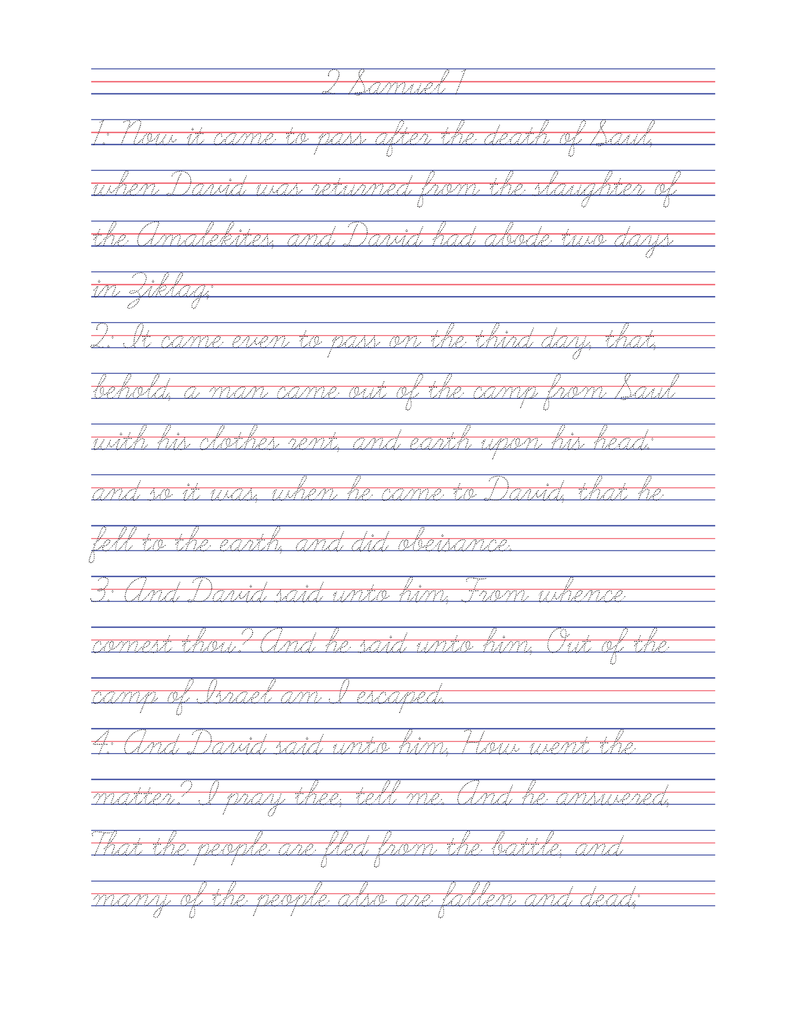 2 Samuel 1
1: Now it came to pass after the death of Saul,
when David was returned from the slaughter of
the Amalekites, and David had abode two days
in Ziklag;
2: It came even to pass on the third day, that,
behold, a man came out of the camp from Saul
with his clothes rent, and earth upon his head:
and so it was, when he came to David, that he
fell to the earth, and did obeisance.
3: And David said unto him, From whence
comest thou? And he said unto him, Out of the
camp of Israel am I escaped.
4: And David said unto him, How went the
matter? I pray thee, tell me. And he answered,
That the people are fled from the battle, and
many of the people also are fallen and dead;